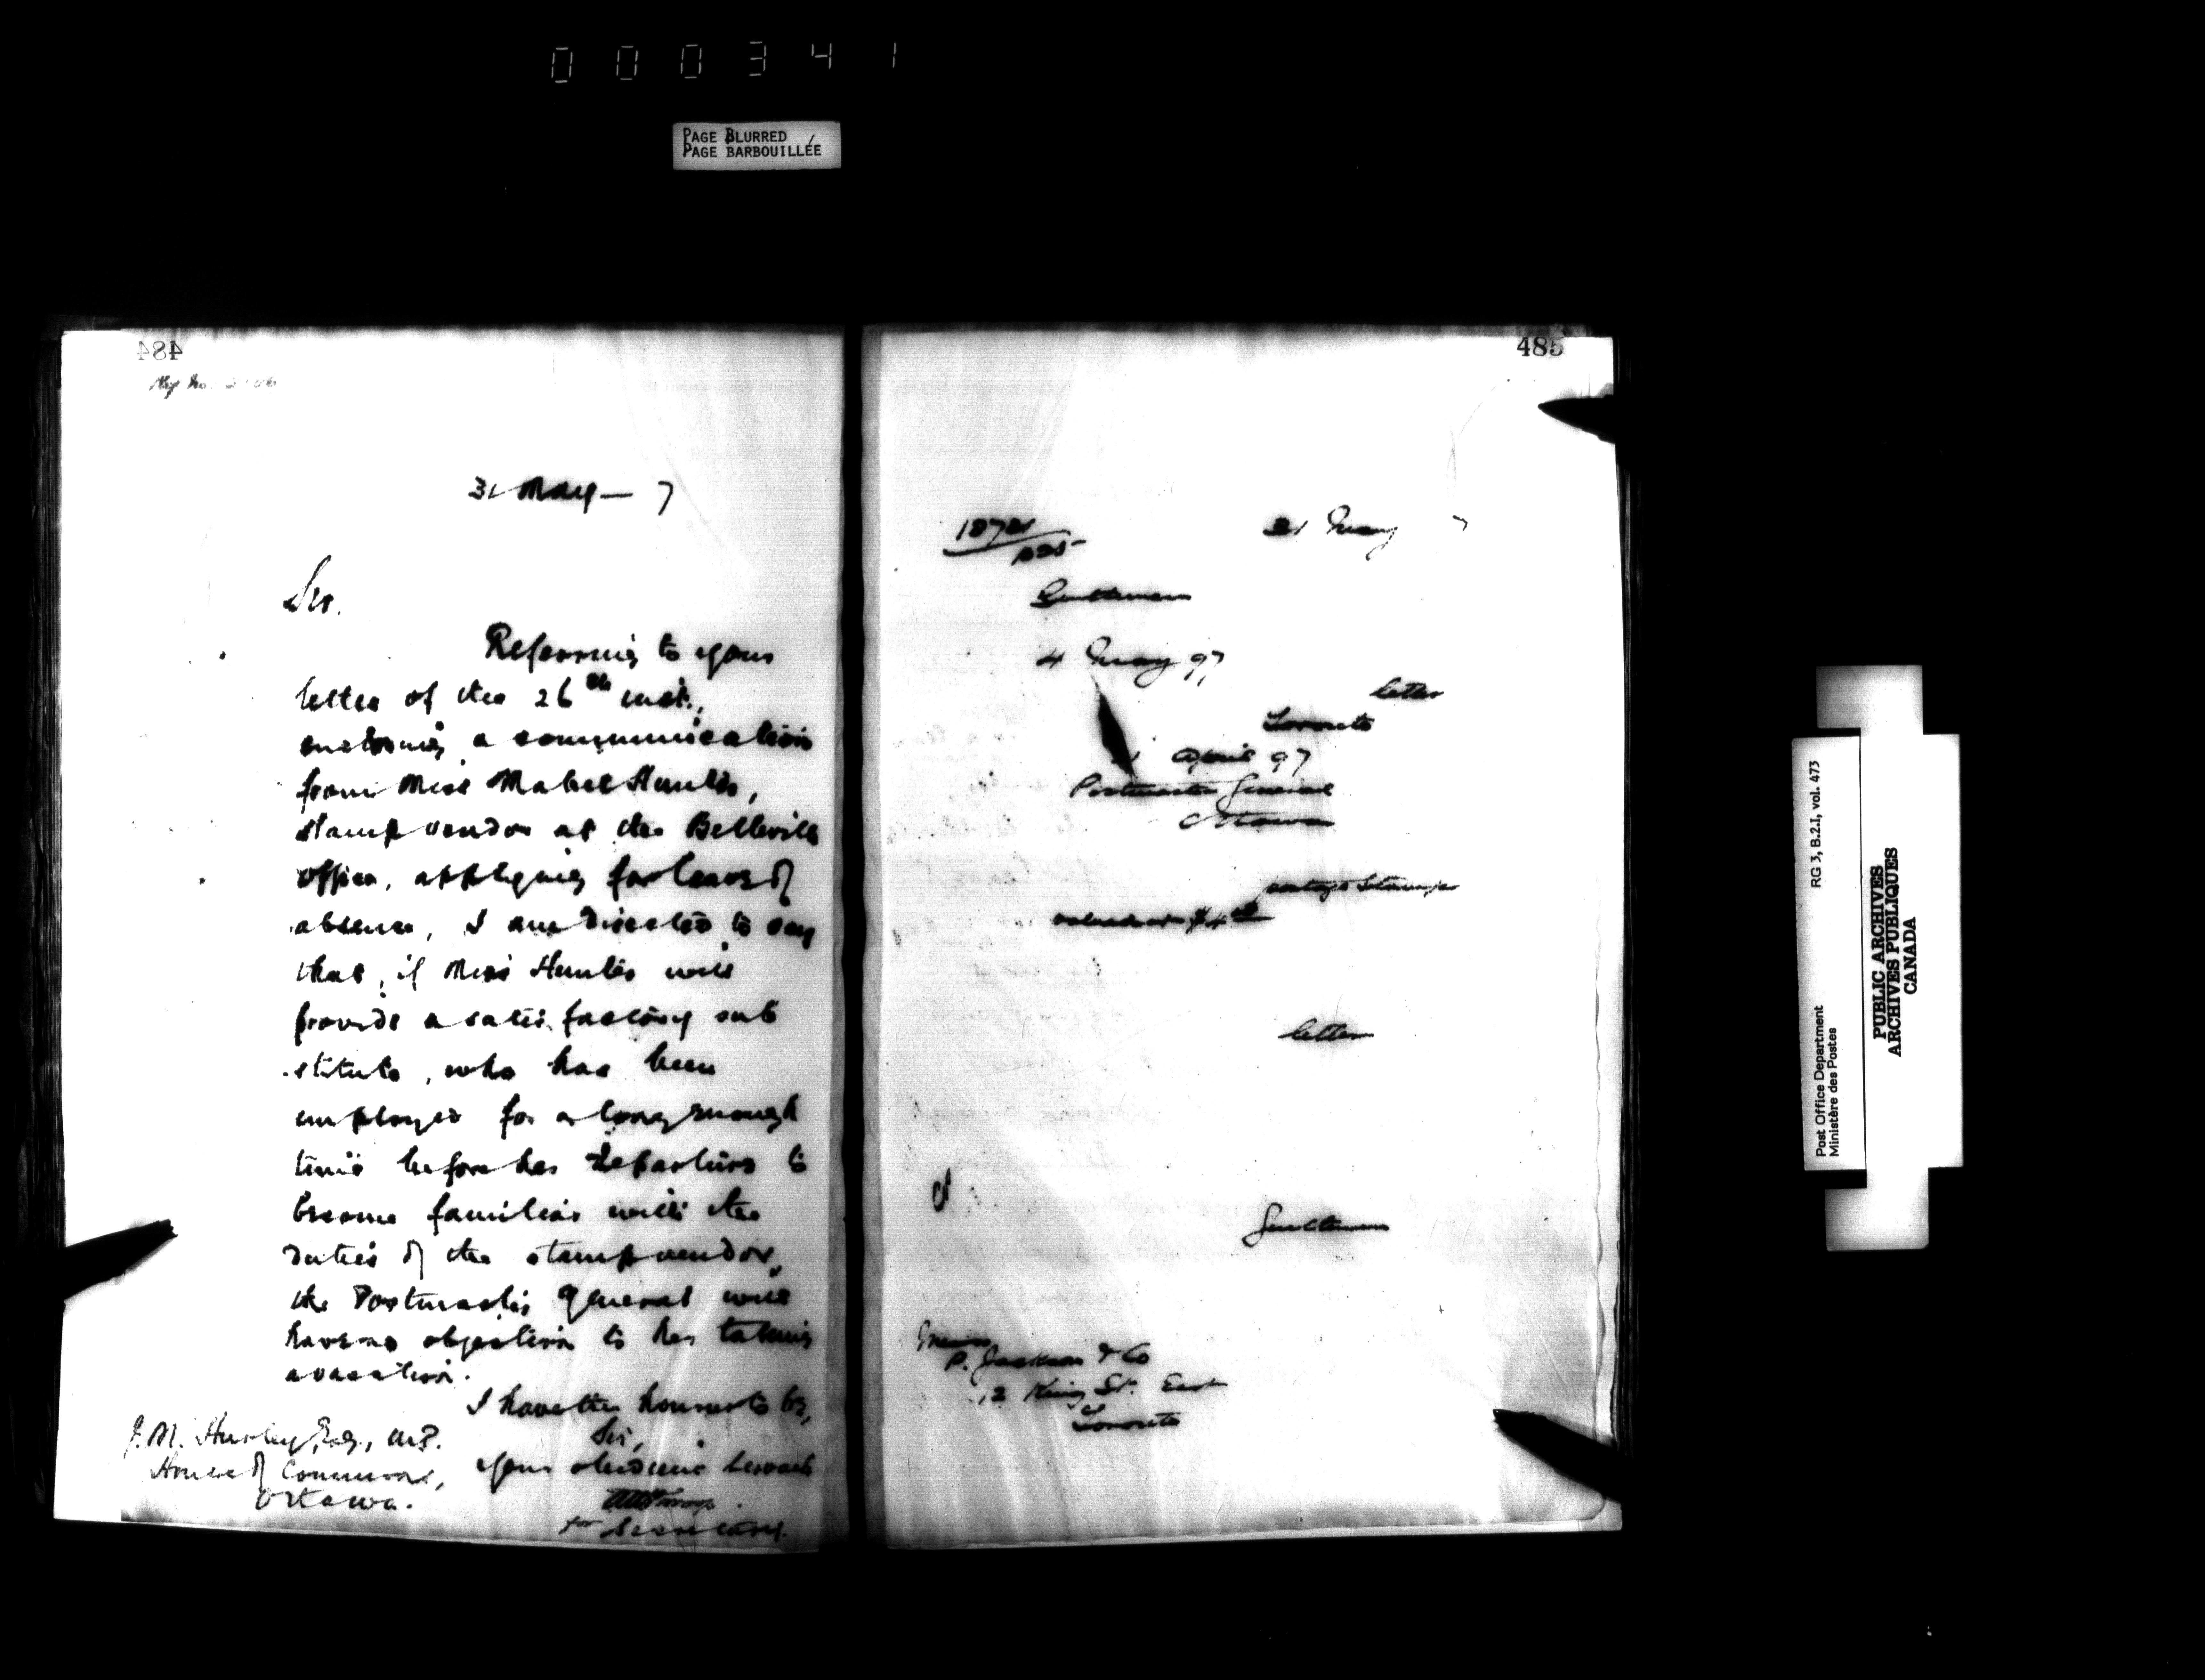 000341
PAGE BLURRED
PAGE BARBOUILLÉE
484
31 May — 7
Sir.
Referring to your
letter of the 26th inst.,
enclosing a communication
from Miss Mabel Hunter,
stamp vendor at the Belleville
office, applying for leave of
absence, I am directed to say
that, if Miss Hunter will
provide a satisfactory sub
stitute, who has been
employed for a long enough
time before her departure to
become familiar with the
duties of the stamp vendor,
the Postmaster General will
have no objection to her taking
a vacation.
I have the honour to be,
Sir,
Your obedient servant
for Secretary.
J. M. Hurley, Esq., M.P.
House of Commons,
Ottawa.
485
31 May 7
Gentlemen
4 May 97
letter
Toronto
April 97
Postmaster General
Ottawa
postage stamps
valued at $4
letter
Gentlemen
Messrs
P. Jackson & Co
12 King St. East
Toronto
Post Office Department
Ministère des Postes
RG 3, B.2.I, vol. 473
PUBLIC ARCHIVES
ARCHIVES PUBLIQUES
CANADA